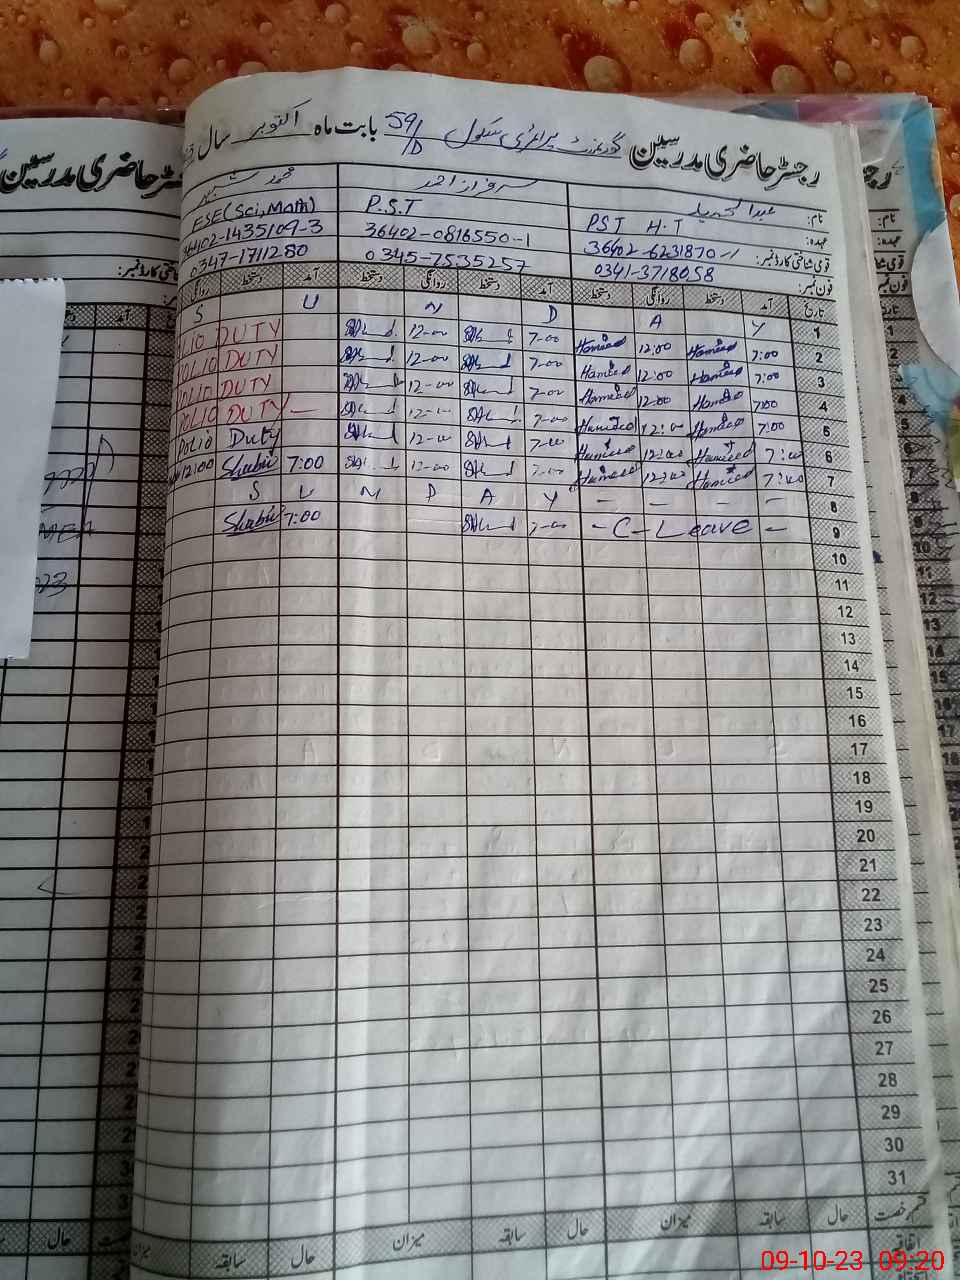 رجسٹر حاضری مدرسین گورنمنٹ پرائمری سکول 59/D بابت ماہ اکتوبر سال
نام: عبدالحمید سرفراز احمد محمد شبیر
عہدہ: PST H.T P.S.T ESE(Sci,Math)
قومی شناختی کارڈ نمبر: 36402-6231870-1 36402-0816550-1 36402-1435109-3
فون نمبر: 0341-3718058 0345-7535257 0347-1711280
تاریخ آمد دستخط روانگی دستخط آمد دستخط روانگی دستخط آمد دستخط روانگی
1 S U N D A Y
2 7:00 Hameed 12:00 Hameed 7-00 12-00 POLIO DUTY
3 7:00 Hameed 12:00 Hameed 7-00 12-00 POLIO DUTY
4 7:00 Hameed 12:00 Hameed 7-00 12-00 POLIO DUTY
5 7:00 Hameed 12:00 Hameed 7-00 12-00 POLIO DUTY
6 7:00 Hameed 12:00 Hameed 7-00 12-00 Polio Duty
7 7:00 Hameed 12:00 Hameed 7-00 12-00 7:00 Shabir 12:00
8 S U N D A Y - - - -
9 - C - Leave - 7-00 7:00 Shabir
10
11
12
13
14
15
16
17
18
19
20
21
22
23
24
25
26
27
28
29
30
31
قسم رخصت حال سابقہ میزان حال سابقہ میزان حال سابقہ میزان
اتفاقیہ
09-10-23 09:20